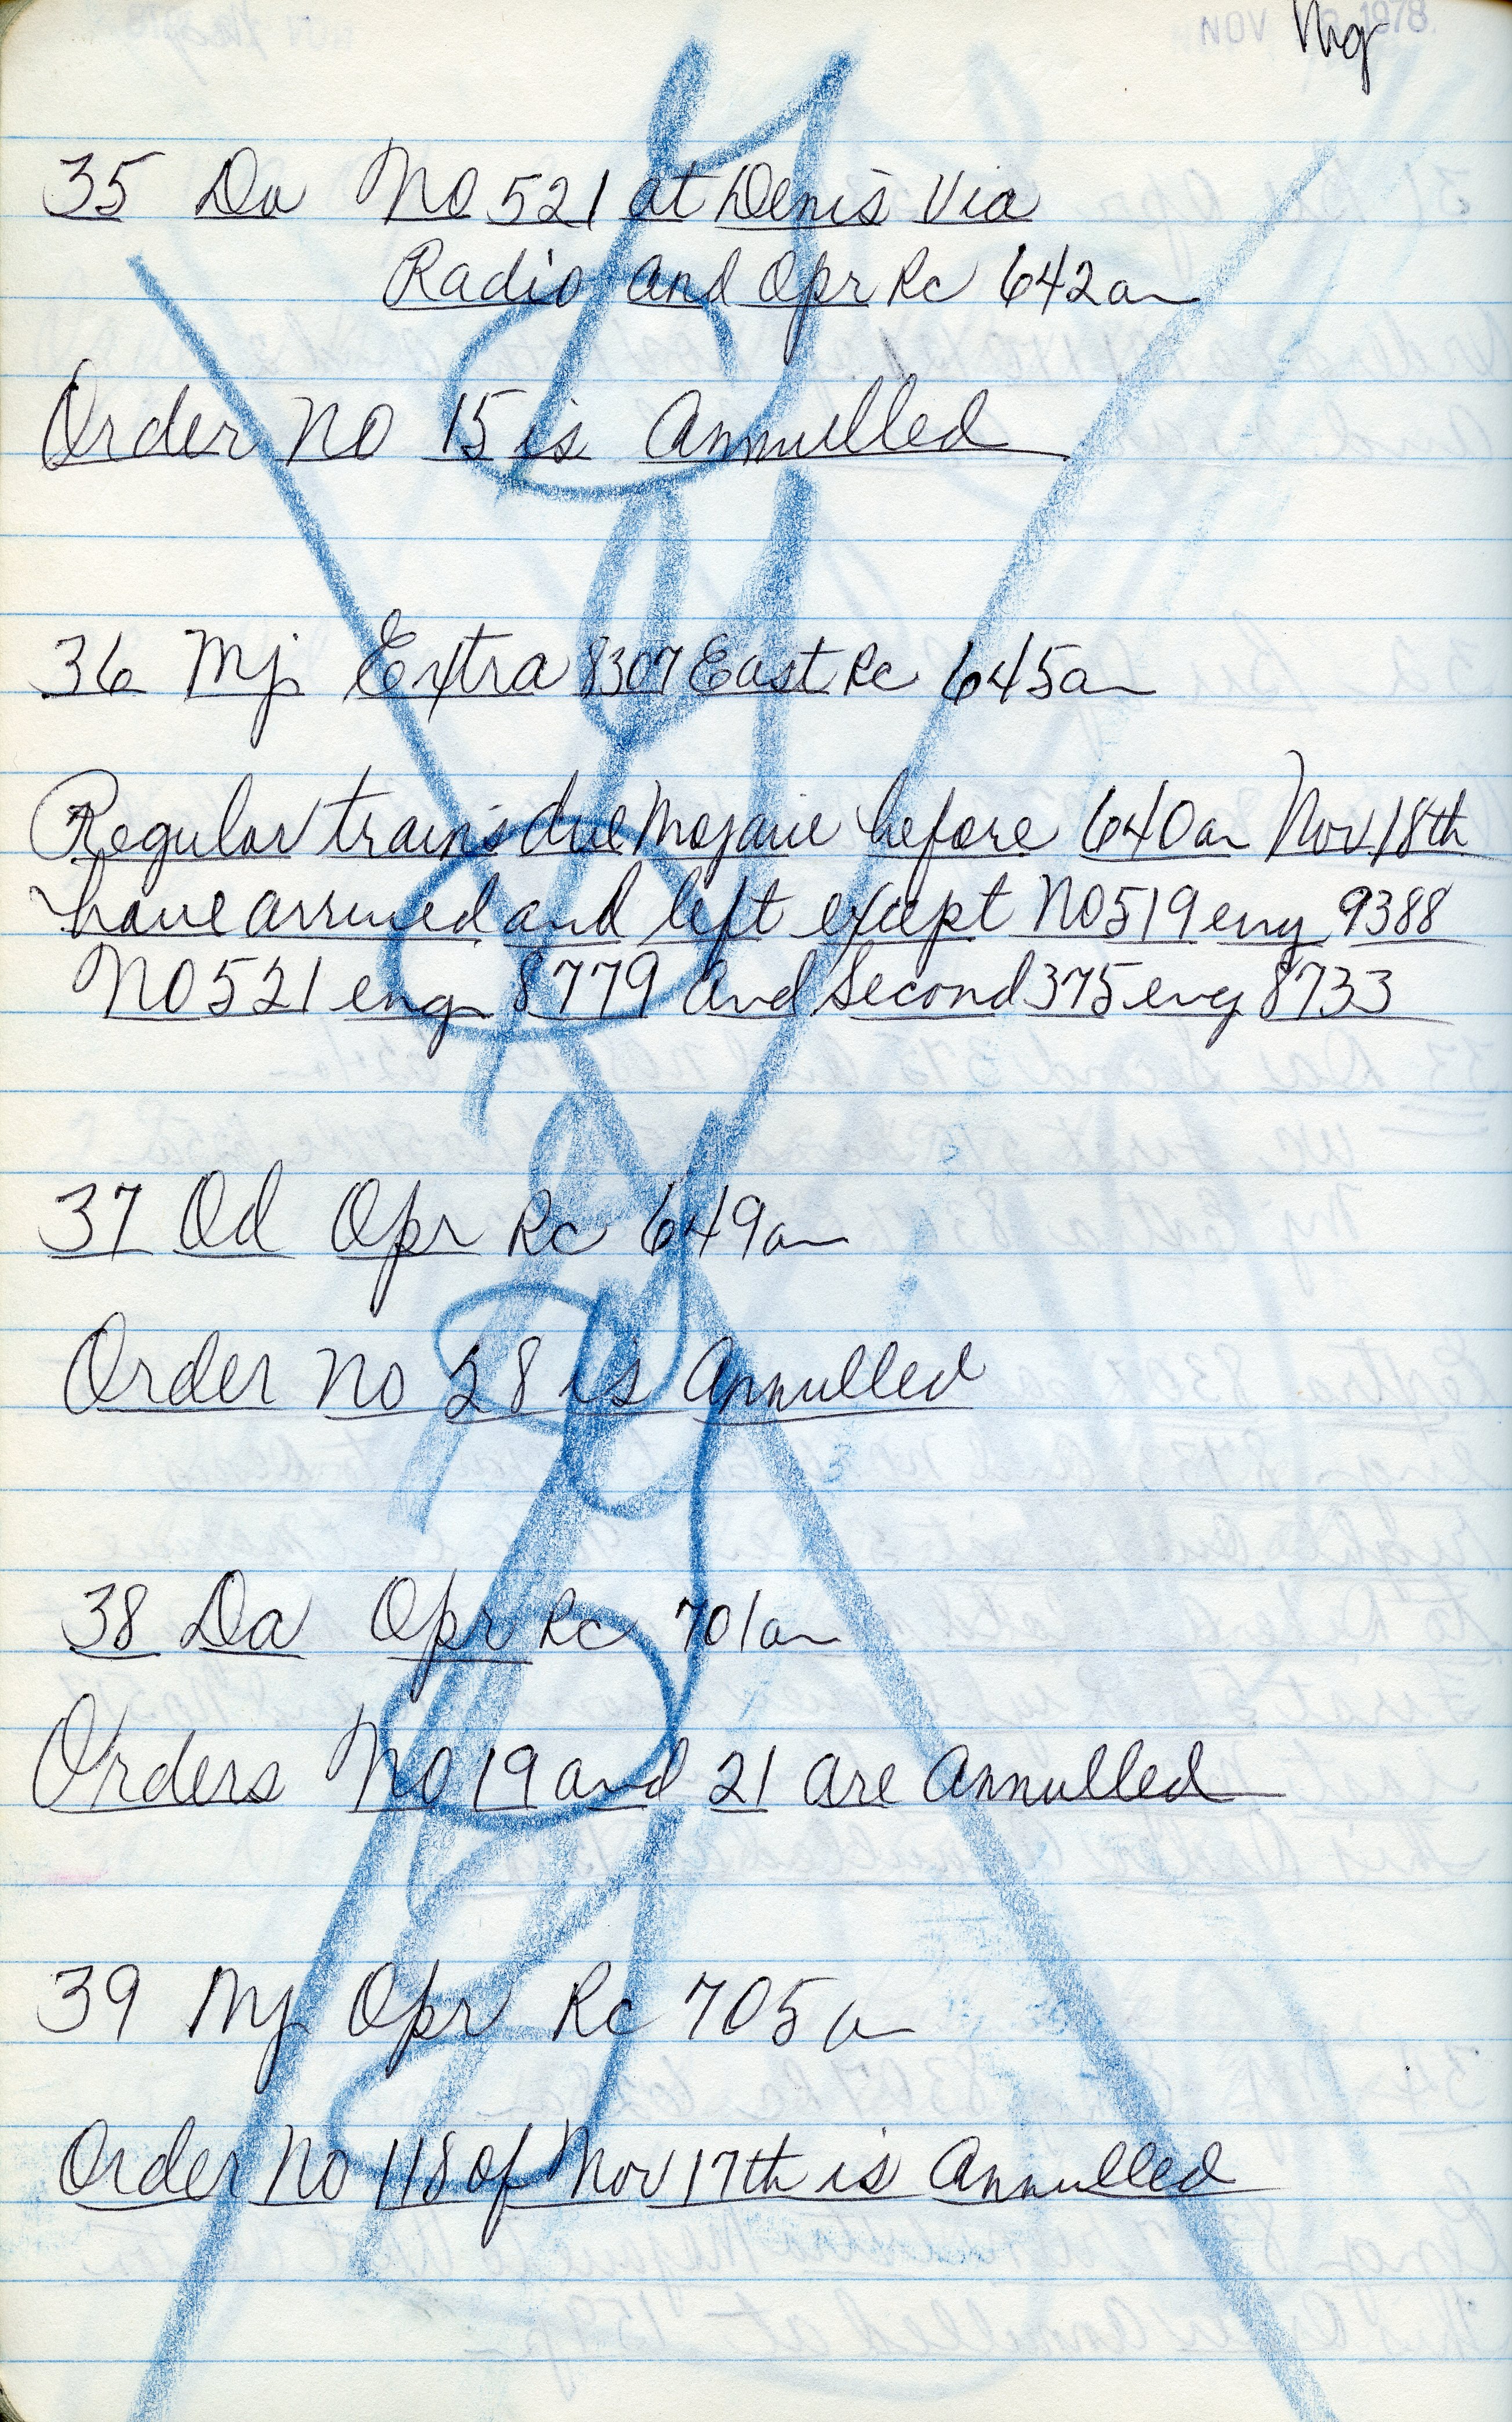 NOV 8 1978
35 Da No 521 at Denis Via
Radio and Opr Rc 642a
Order No 15 is Annulled
36 Mj Extra 8307 East Rc 645a
Regular trains due Mojave before 640a Nov 18th
have arrived and left except No 519 eng 9388
No 521 eng 8779 and Second 375 eng 8733
37 Od Opr Rc 649a
Order No 28 is Annulled
38 Da Opr Rc 701a
Orders No 19 and 21 are Annulled
39 Mj Opr Rc 705a
Order No 118 of Nov 17th is Annulled